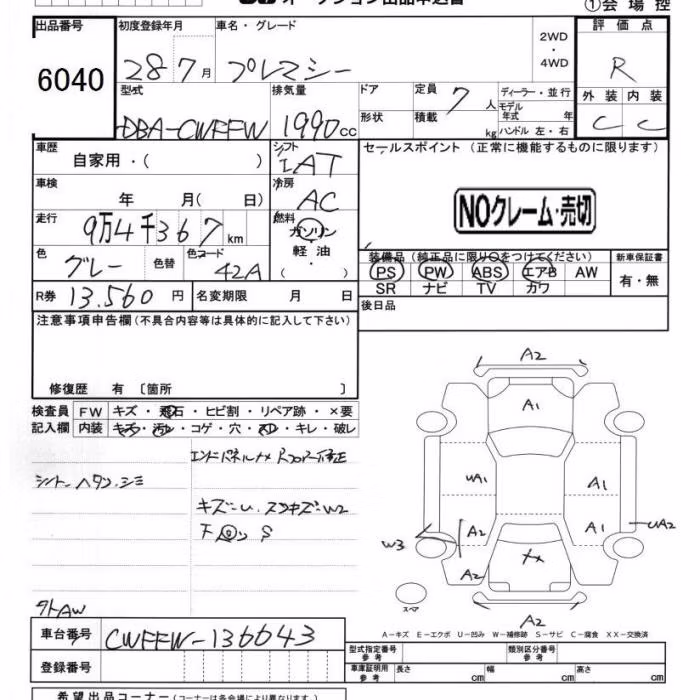 オークション出品申込書
①会場控
出品番号 初度登録年月 車名・グレード 評価点
6040 28年7月 プレマシー 2WD・4WD R
型式 排気量 ドア 定員 ディーラー・並行 外装 内装
DBA-CWFFW 1990cc 7人 モデル年式 年 C C
形状 積載 kg ハンドル 左・右
車歴 シフト セールスポイント (正常に機能するものに限ります)
自家用・( ) IAT
車検 冷房
年 月(日) AC
NOクレーム・売切
走行 燃料
9万4千367km ガソリン
軽油・
色 色替 色コード ( )
グレー 42A
装備品(純正品に限り○をつけてください) 新車保証書
PS PW ABS エアB AW 有・無
SR ナビ TV カワ
R券 13.560円 名変期限 月 日 後日品
注意事項申告欄(不具合内容等は具体的に記入して下さい)
修復歴 有〔箇所 〕
検査員 FW キズ・飛石・ヒビ割・リペア跡・×要
記入欄 内装 キズ・汚レ・コゲ・穴・スレ・キレ・破レ
シート ヘタリ.シミ
キズ-U.スリキズ-W2
下回り S
タトAW
A2
A1
UA1
A1
W3
A2
A1
UA2
A2
A2
スペア
A-キズ E-エクボ U-凹み W-補修跡 S-サビ C-腐食 XX-交換済
車台番号 CWFFW-136643
登録番号
型式指定番号 参考 類別区分番号 参考
車庫証明用 参考 長さ cm 幅 cm 高さ cm
希望出品コーナー(コーナーは各会場により異なります。)